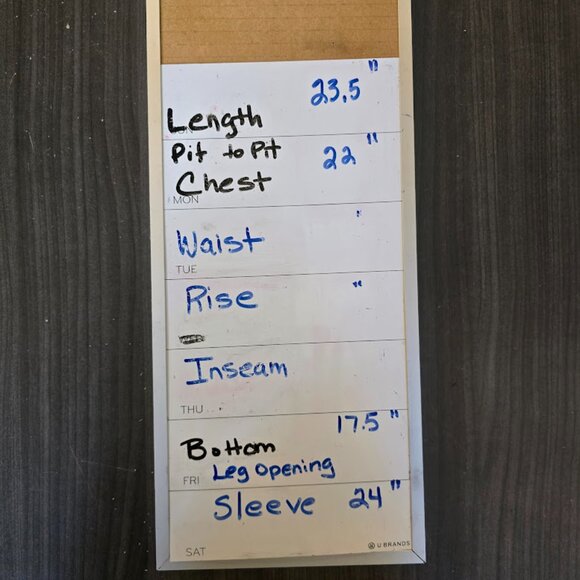 23.5 "
Length
Pit to Pit 22 "
Chest
MON
Waist "
TUE
Rise "
Inseam
THU
17.5 "
Bottom
FRI Leg Opening
Sleeve 24 "
SAT U BRANDS